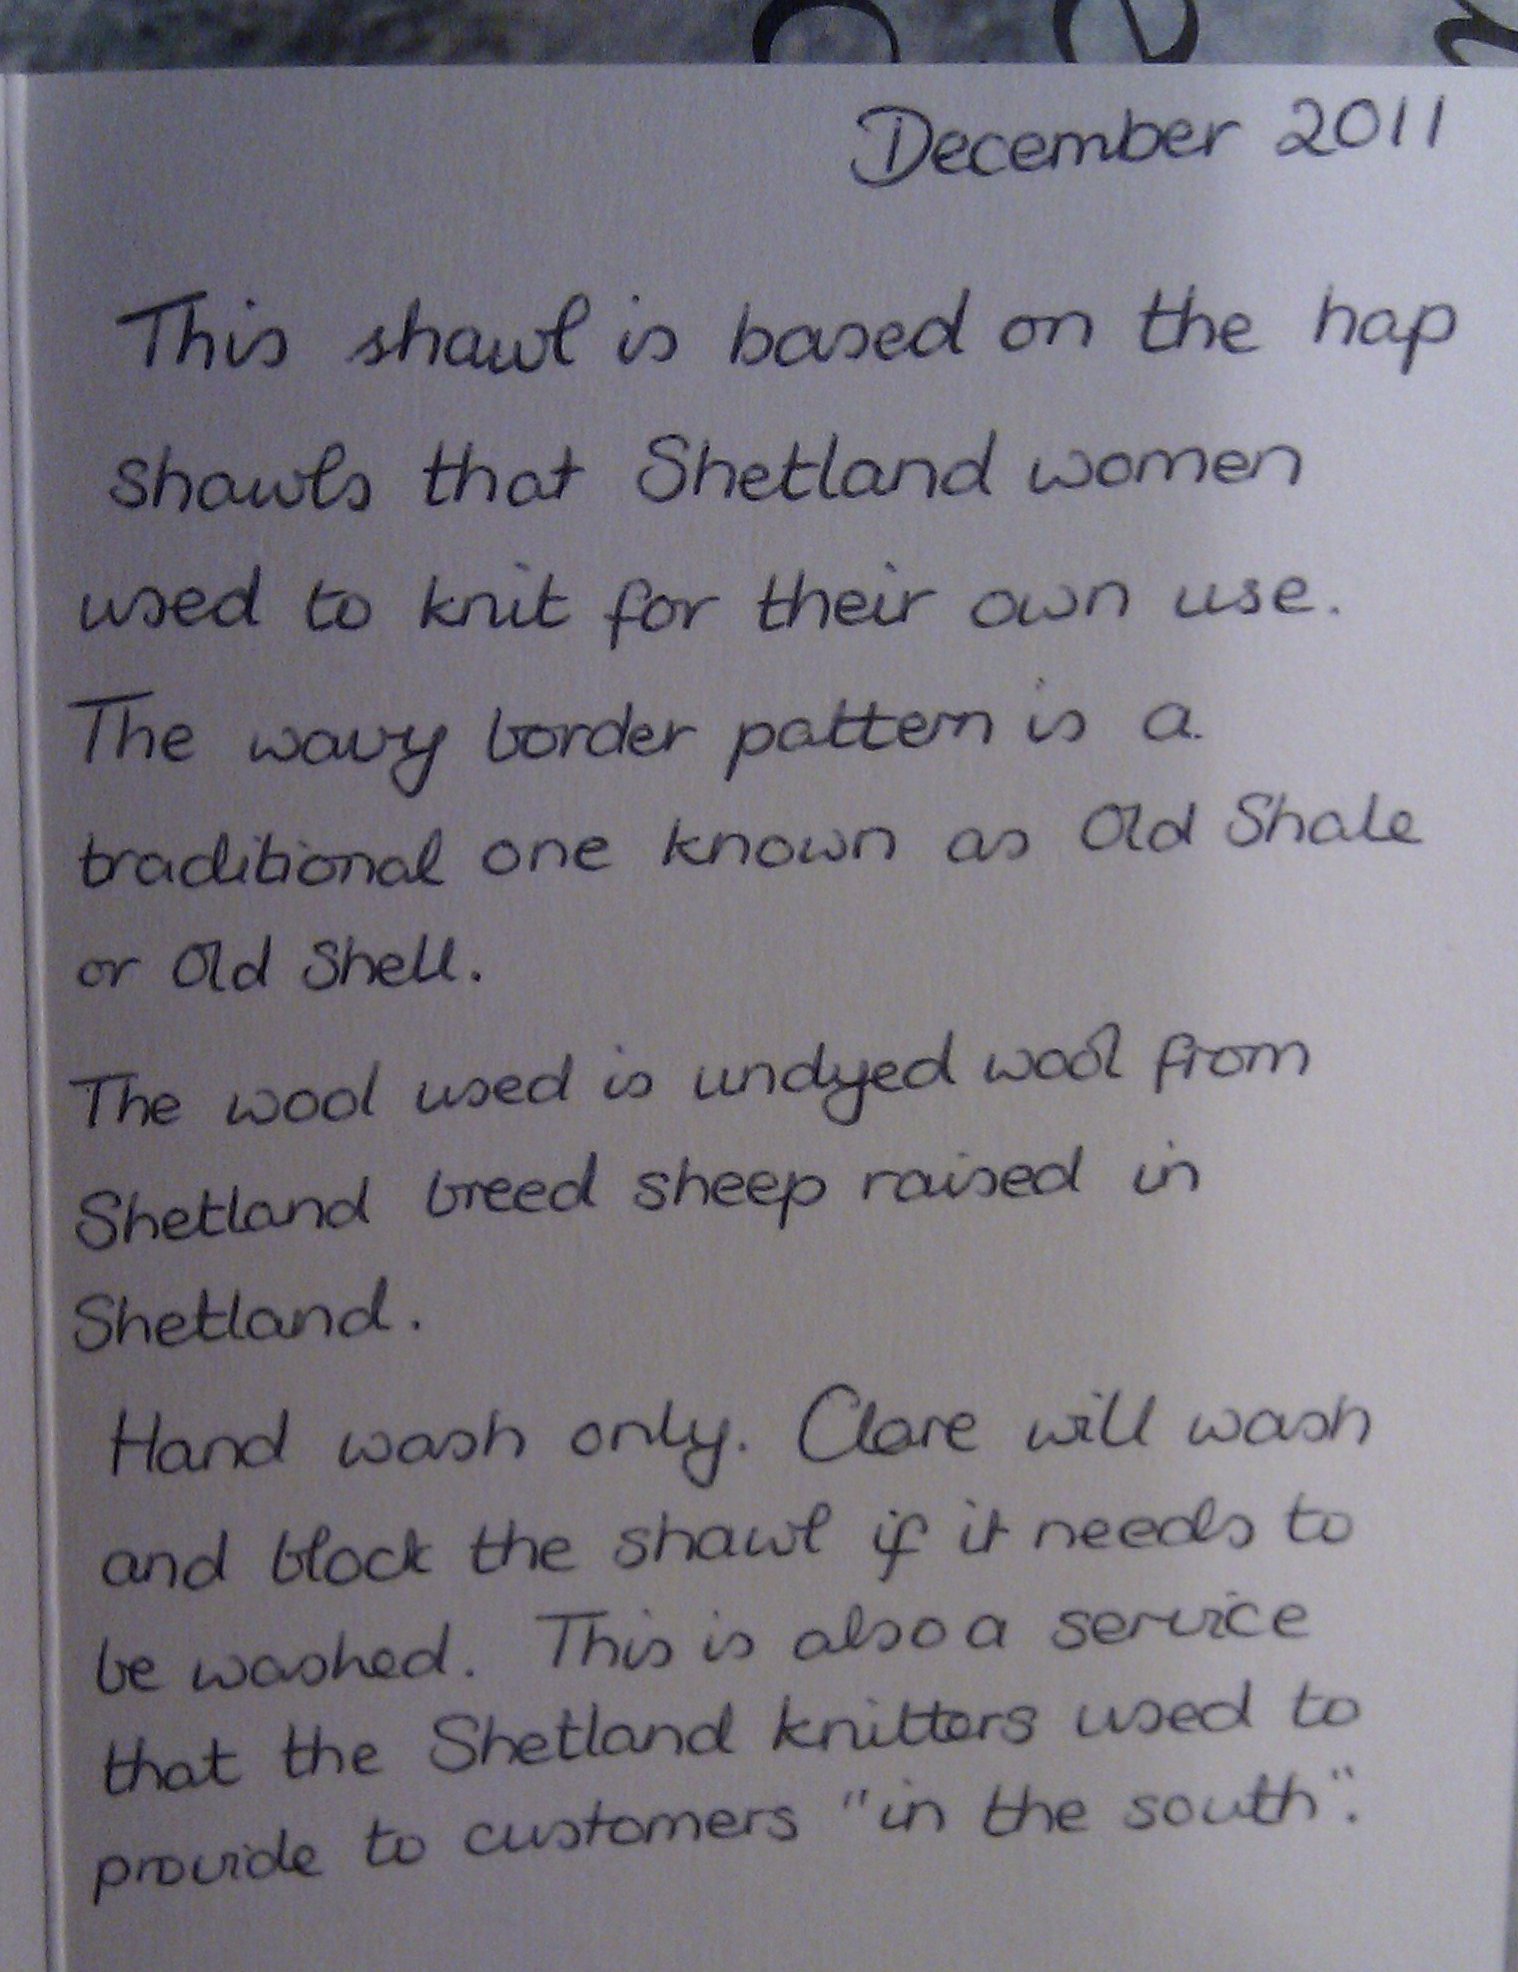 December 2011
This shawl is based on the hap
shawls that Shetland women
used to knit for their own use.
The wavy border pattern is a
traditional one known as Old Shale
or Old Shell.
The wool used is undyed wool from
Shetland breed sheep raised in
Shetland.
Hand wash only. Clare will wash
and block the shawl if it needs to
be washed. This is also a service
that the Shetland knitters used to
provide to customers "in the south".